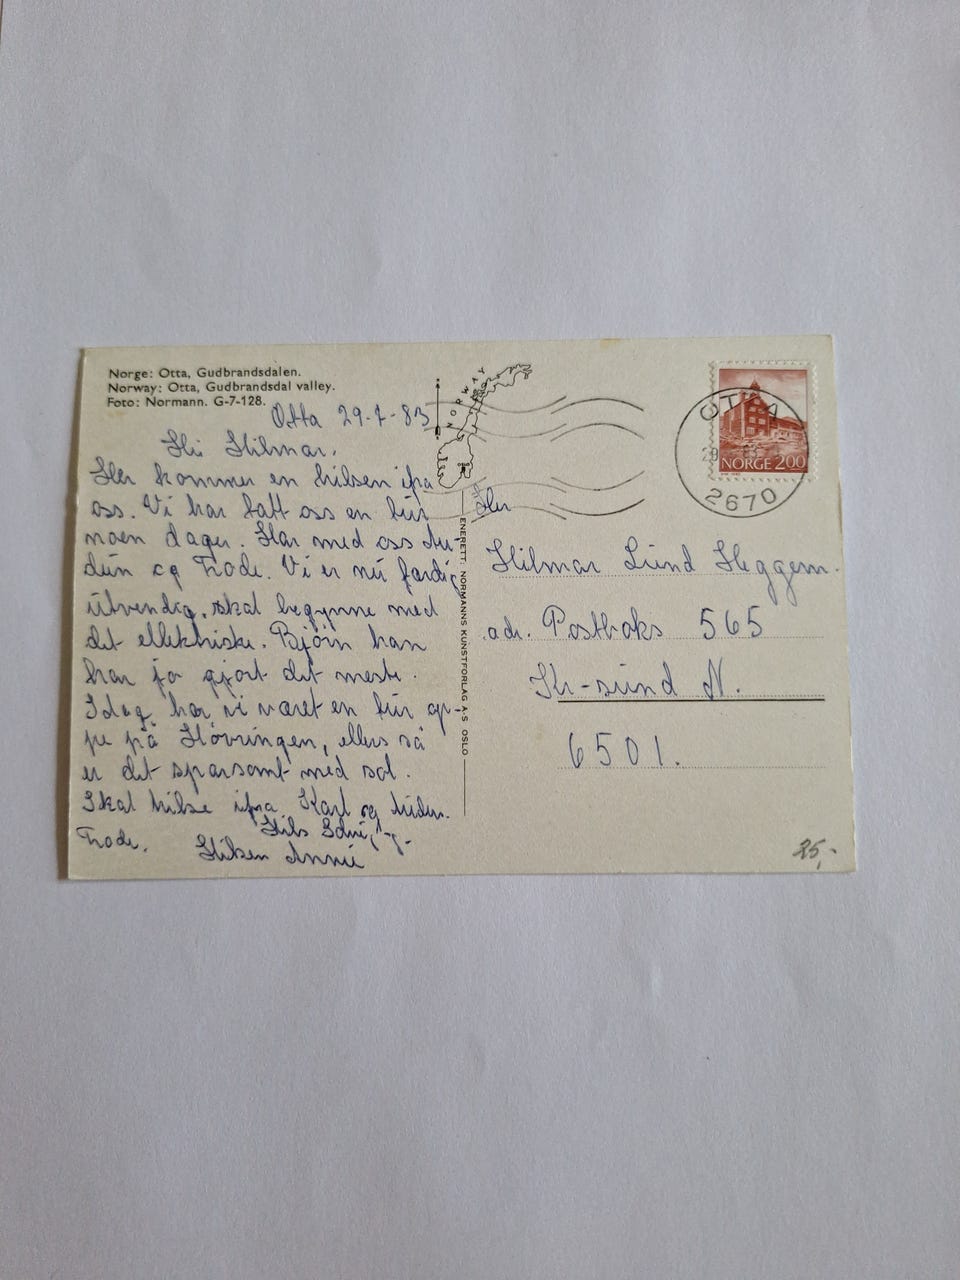 Norge: Otta, Gudbrandsdalen.
Norway: Otta, Gudbrandsdal valley.
Foto: Normann. G-7-128.
Otta 29-7-83
Hei Hilmar.
Her kommer en hilsen ifra
oss. Vi har tatt oss en tur
noen dager. Har med oss Au-
dun og Frode. Vi er nu færdig
utvendig, skal begynne med
det ellektriske. Bjørn han
har jo gjort det meste.
Idag har vi været en tur op-
pe på Høvringen, ellers så
er det sparsomt med sol.
Skal hilse ifra Karl og
Frode.
Hils
Hilsen Annie
NORWAY
ENERETT: NORMANNS KUNSTFORLAG A-S OSLO
OTTA
29
83
2670
NORGE 200
Herr
Hilmar Lund Heggem.
adr. Postboks 565
Kr-sund N.
6501.
25,-